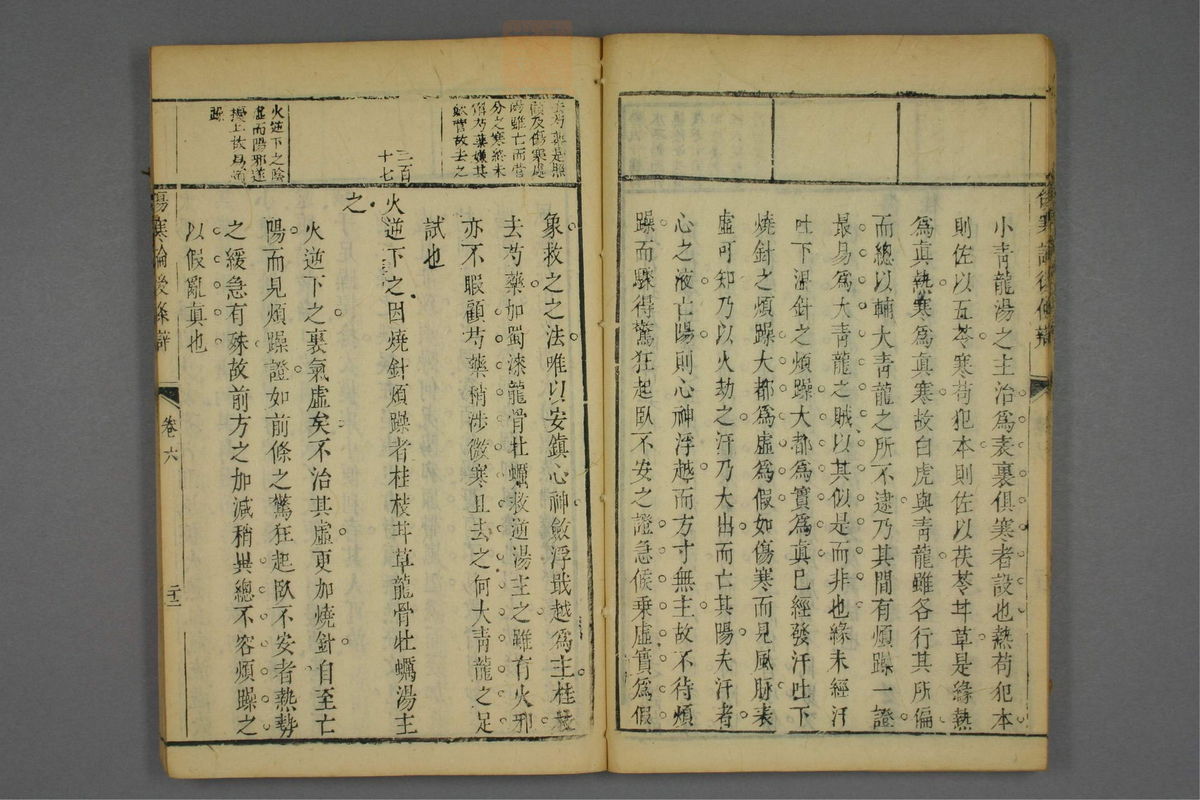 小青龍湯之主治爲表裏俱寒者設也熱苟犯本
則佐以五苓寒苟犯本則佐以茯苓甘草是緣熱
爲眞熱寒爲眞寒故白虎與青龍雖各行其所偏
而總以輔大青龍之所不逮乃其間有煩躁一證
最易爲大青龍之賊以其似是而非也緣未經汗
吐下溫針之煩躁大都爲實爲眞已經發汗吐下
燒針之煩躁大都爲虛爲假如傷寒而見風脉表
虛可知乃以火劫之汗乃大出而亡其陽夫汗者
心之液亡陽則心神浮越而方寸無主故不待煩
躁而驟得驚狂起臥不安之證急候乗虛實爲假
去芍藥是照
顧及傷寒處
陽雖亡而營
分之寒終未
解芍藥嫌其
歛營故去之
象救之之法唯以安鎮心神斂浮戢越爲主桂枝
去芍藥加蜀漆龍骨牡蠣救逆湯主之雖有火邪
亦不暇顧芍藥稍涉微寒且去之何大青龍之足
試也
二百
十七
火逆下之因燒針煩躁者桂枝甘草龍骨牡蠣湯主
之
火逆下之陰
虛而陽邪遂
擾上故爲煩
躁
火逆下之裏氣虛矣不治其虛更加燒針自至亡
陽而見煩躁證如前條之驚狂起臥不安者熱勢
之緩急有殊故前方之加減稍異總不容煩躁之
以假亂眞也
傷寒論後條辯
卷六